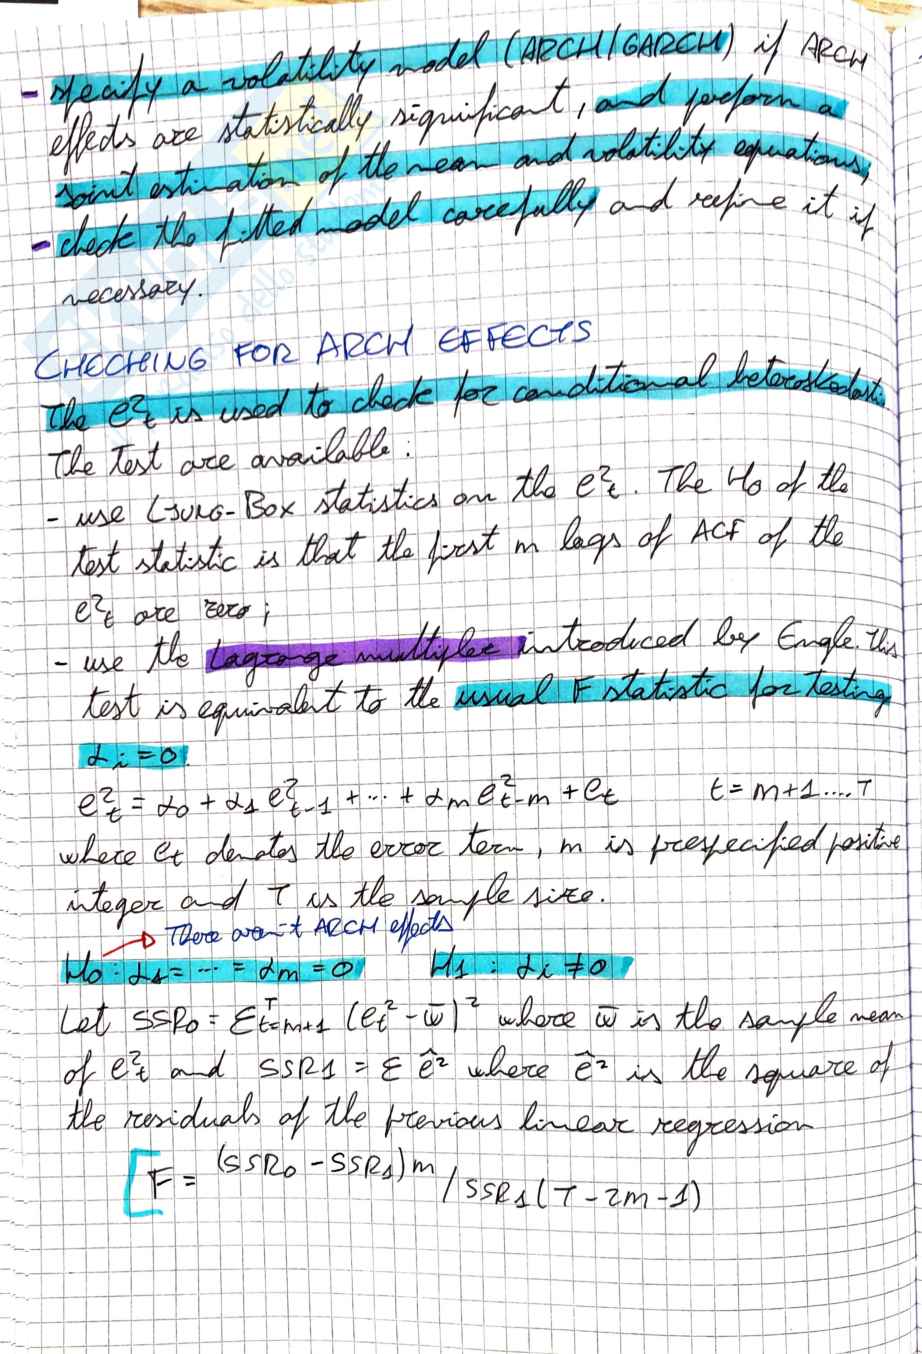 - specify a volatility model (ARCH/GARCH) if ARCH
effects are statistically significant, and perform a
joint estimation of the mean and volatility equations;
- check the fitted model carefully and refine it if
necessary.
CHECHING FOR ARCH EFFECTS
The e²t is used to check for conditional heteroskedastic.
The test are available:
- use LJUNG-BOX statistics on the e²t. The H0 of the
test statistic is that the first m lags of ACF of the
e²t are zero;
- use the Lagrange multiplier introduced by Engle. This
test is equivalent to the usual F statistic for testing
αi=0.
e²t = α0 + α1 e²t-1 + ... + αm e²t-m + et t = m+1....T
where et denotes the error term, m is prespecified positive
integer and T is the sample size.
There aren't ARCH effects
H0: α1 = ... = αm = 0 H1: αi ≠ 0
Let SSR0 = Σᵀt=m+1 (et² - ω̅)² where ω̅ is the sample mean
of e²t and SSR1 = Σ ê² where ê² is the square of
the residuals of the previous linear regression
F = (SSR0 - SSR1) m / SSR1 (T - 2m - 1)